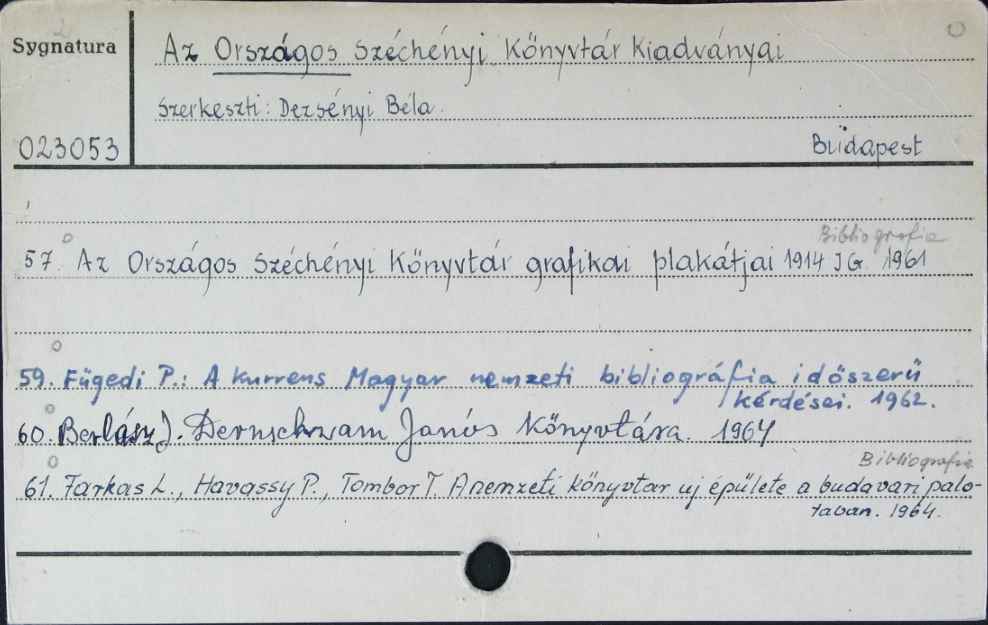 Sygnatura
Az Országos Széchényi Könyvtár Kiadványai
Szerkeszti: Dezsényi Béla.
023053
Budapest
Bibliografia
57. Az Országos Széchényi Könyvtár grafikai plakátjai 1914 IG. 1961
59. Fügedi P.: A kurrens Magyar nemzeti bibliográfia időszerű
kérdései. 1962.
60. Berlász J. Dernschwam János Könyvtára. 1964
Bibliografia
61. Farkas L., Havassy P., Tombor T. A nemzeti könyvtar uj épülete a budavari palo-
taban. 1964.